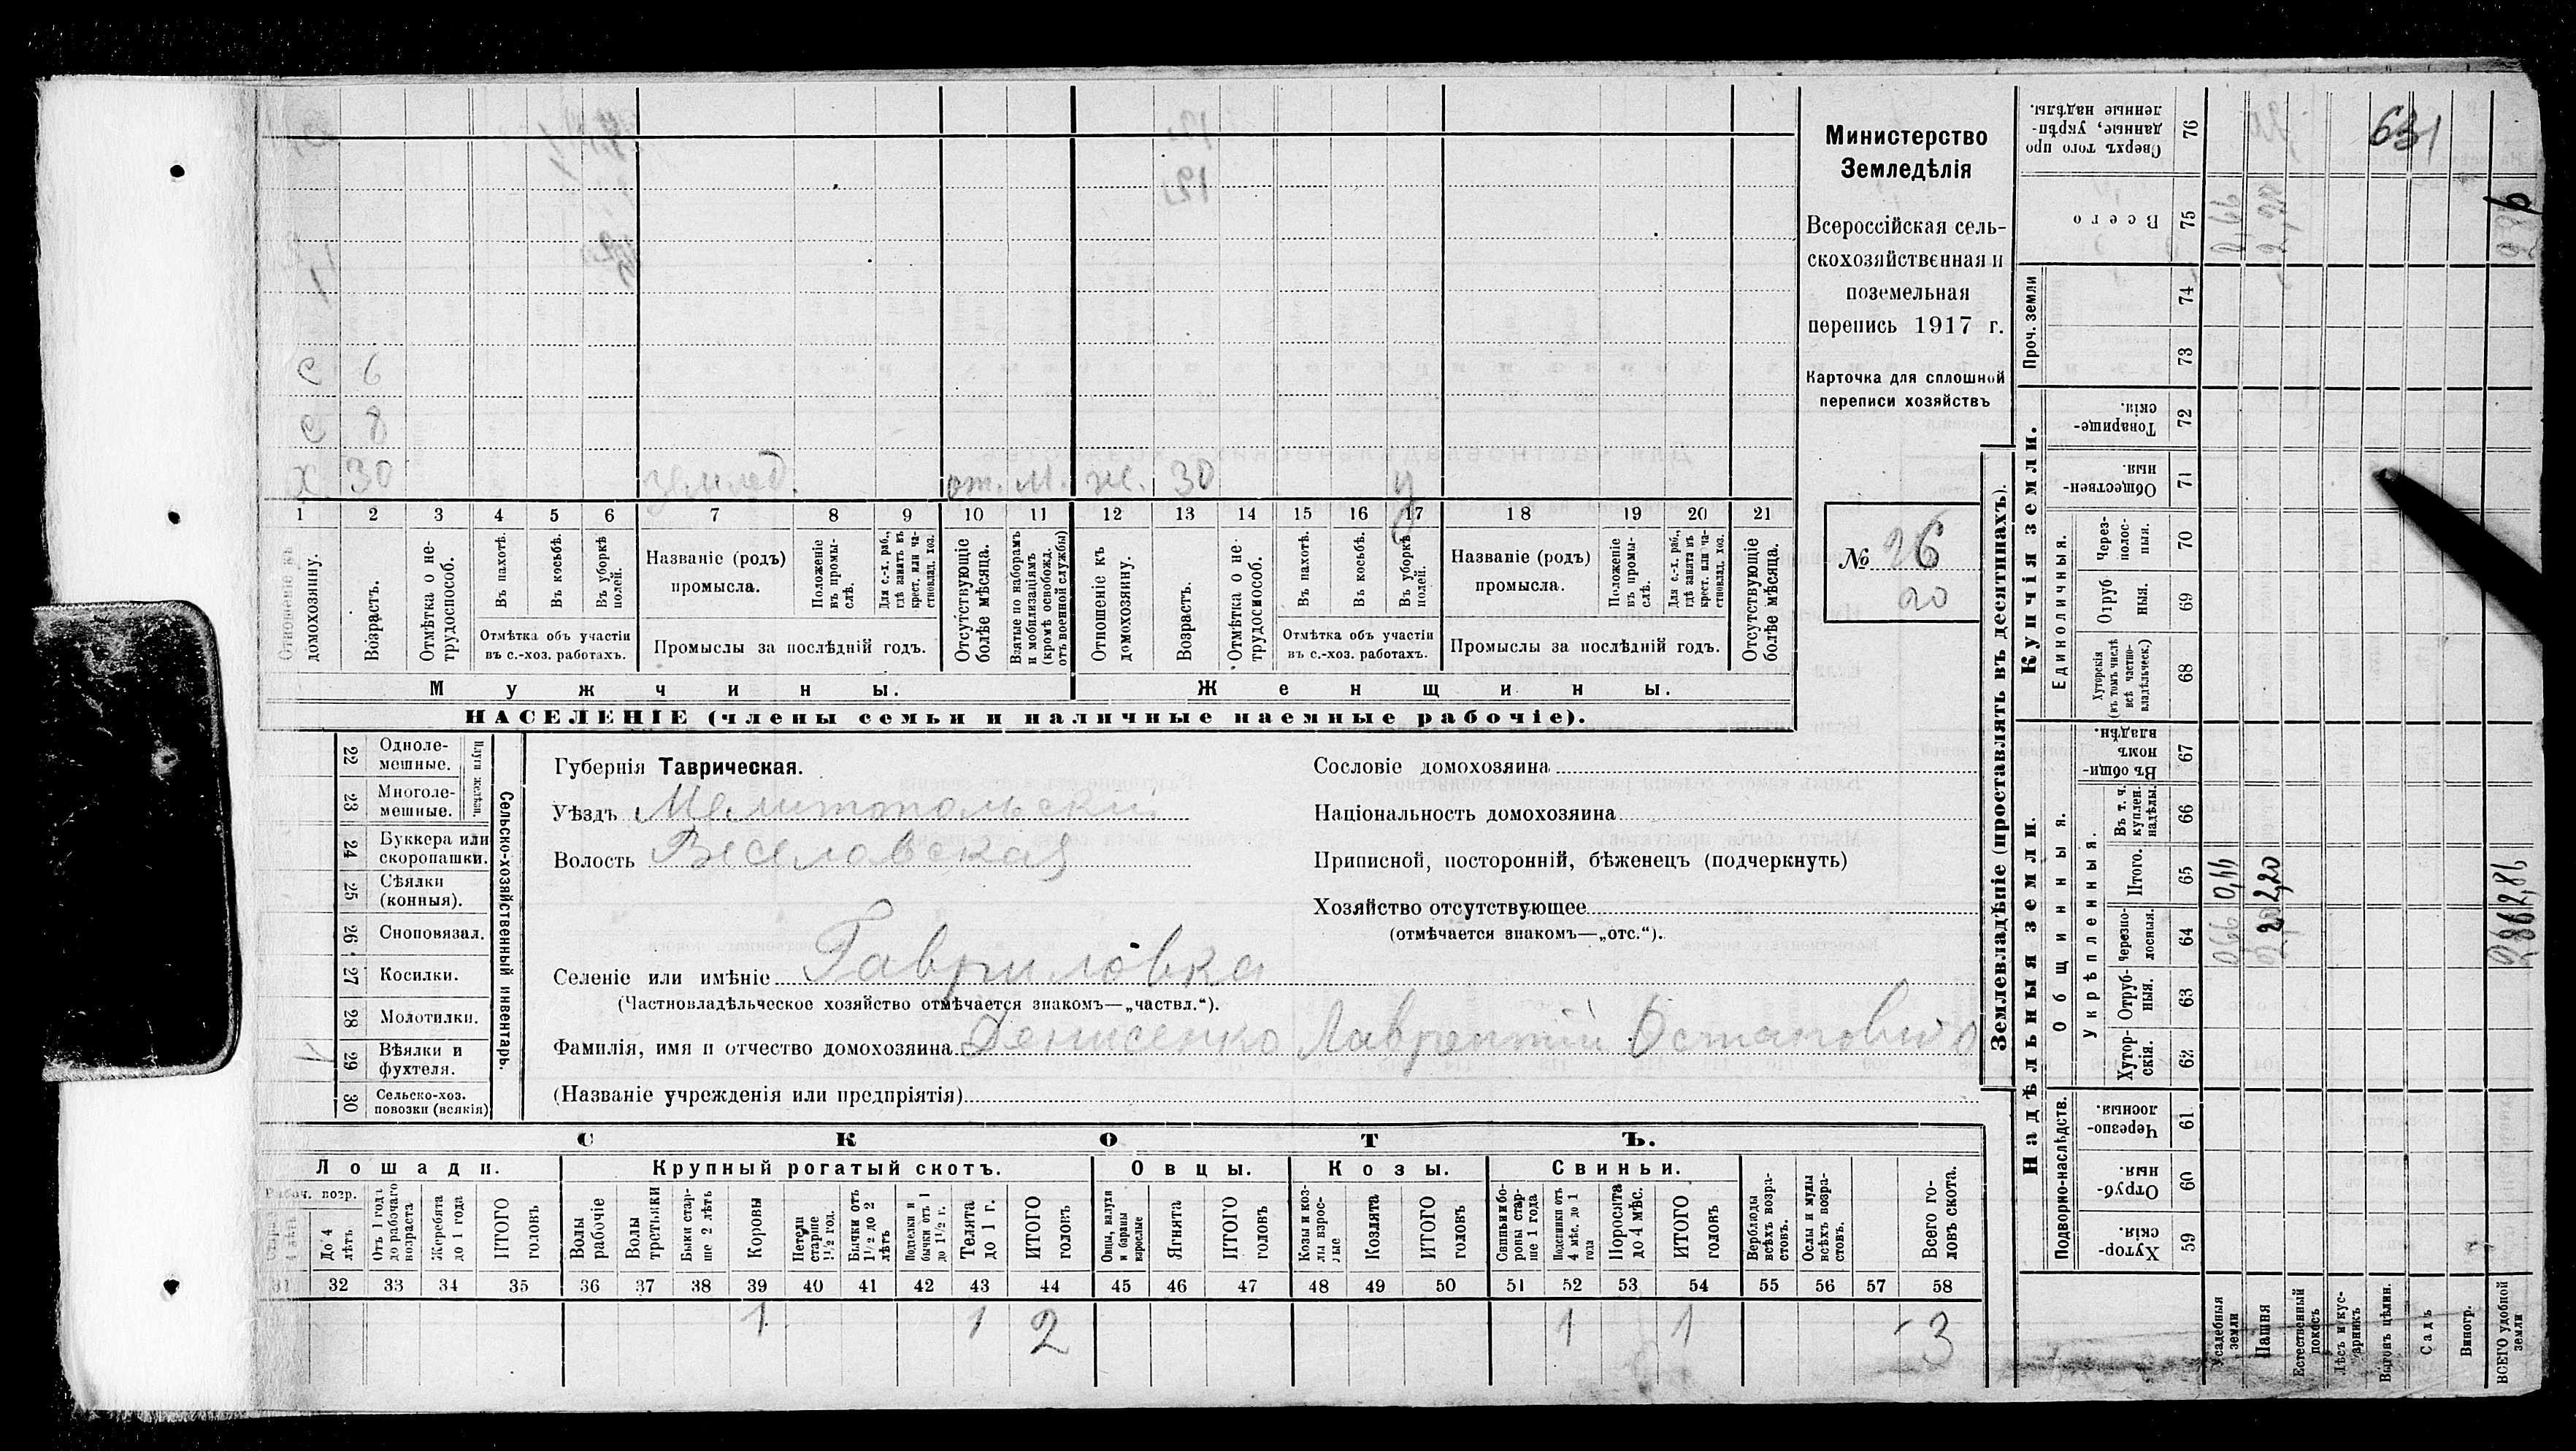 Министерство
Земледѣлія
Всероссійская сель-
скохозяйственная и
поземельная
перепись 1917 г.
Карточка для сплошной
переписи хозяйствъ
№ 26
20
с 6
с 8
х 30 землед. от. м. ж. 30 у
1 2 3 4 5 6 7 8 9 10 11 12 13 14 15 16 17 18 19 20 21
Отношеніе къ домохозяину.
Возрастъ.
Отмѣтка о не-
трудоспособ.
Въ пахотѣ.
Въ косьбѣ.
Въ уборкѣ
полей.
Отмѣтка объ участіи
въ с.-хоз. работахъ.
Названіе (родъ)
промысла.
Положеніе
въ промы-
слѣ.
Для с.-х. раб.,
гдѣ занятъ въ
крест. или ча-
стновлад. хоз.
Промыслы за послѣдній годъ.
Отсутствующіе
болѣе мѣсяца.
Взятые по наборамъ
и мобилизаціямъ
(кромѣ освобожд.
отъ военной службы)
Отношеніе къ
домохозяину.
Возрастъ.
Отмѣтка о не
трудоспособ.
Въ пахотѣ.
Въ косьбѣ.
Въ уборкѣ
полей.
Отмѣтка объ участіи
въ с.-хоз. работахъ.
Названіе (родъ)
промысла.
Положеніе
въ промы-
слѣ.
Для с.-х. раб.,
гдѣ занята въ
крест. или ча-
стновлад. хоз.
Промыслы за послѣдній годъ.
Отсутствующіе
болѣе мѣсяца.
Мужчины.
Женщины.
НАСЕЛЕНІЕ (члены семьи и наличные наемные рабочіе).
22 Одноле-
мешные.
23 Многоле-
мешные.
Плуги желѣзн.
24 Буккера или
скоропашки.
25 Сѣялки
(конныя).
26 Сноповязал.
27 Косилки.
28 Молотилки.
29 Вѣялки и
фухтеля.
30 Сельско-хоз.
повозки (всякія)
Сельско-хозяйственный инвентарь.
Губернія Таврическая.
Уѣздъ Мелитопольскій
Волость Веселовская
Сословіе домохозяина
Національность домохозяина
Приписной, посторонній, бѣженецъ (подчеркнуть)
Хозяйство отсутствующее
(отмѣчается знакомъ—„отс.“).
Селеніе или имѣніе Гавриловка
(Частновладѣльческое хозяйство отмѣчается знакомъ—„частвл.“).
Фамилія, имя и отчество домохозяина Денисенко Лаврентій Остапович
(Названіе учрежденія или предпріятія)
СКОТЪ.
Лошади. Крупный рогатый скотъ. Овцы. Козы. Свиньи.
Рабоч. возр.
До 4
лѣтъ
Отъ 1 года
до рабочаго
возраста
Жеребята
до 1 года
ИТОГО
головъ
Волы
рабочіе
Волы
третьяки
Быки стар-
ше 2 лѣтъ
Коровы
Нетели
старше
1 1/2 год.
Бычки отъ
1 1/2 до 2
лѣтъ
Подтелки и
бычки отъ 1
до 1 1/2 г.
Телята
до 1 г.
ИТОГО
головъ
Овцы, валухи
и бараны
взрослые
Ягнята
ИТОГО
головъ
Козы и коз-
лы взрос-
лые
Козлята
ИТОГО
головъ
Свиньи и бо-
ровы стар-
ше 1 года
Подсвинки отъ
4 мѣс. до 1
года
Поросята
до 4 мѣс.
ИТОГО
головъ
Верблюды
всѣхъ возра-
стовъ.
Ослы и мулы
всѣхъ возра-
стовъ.
Всего го-
ловъ скота.
31 32 33 34 35 36 37 38 39 40 41 42 43 44 45 46 47 48 49 50 51 52 53 54 55 56 57 58
1 1 2 1 1 3
Землевладѣніе (проставлять въ десятинахъ).
Надѣльныя земли.
Купчія земли.
Проч. земли
Подворно-наслѣдств.
Общинныя.
Укрѣпленныя.
Единоличныя.
Хутор-
скія. 59
Отруб-
ныя. 60
Черезпо-
лосныя. 61
Хутор-
скія. 62
Отруб-
ныя. 63
Черезпо-
лосныя. 64
Итого. 65
Въ т. ч.
куплен.
надѣлы. 66
Въ общи-
номъ
владѣн. 67
Хуторскія
(въ томъ числѣ
всѣ частно-
владѣльческ.) 68
Отруб
ныя. 69
Через-
полос-
ныя. 70
Обществен-
ныя. 71
Товарище-
скія. 72
73
74
Всего 75
Сверхъ того про
данные, укрѣп-
ленные надѣлы. 76
631
Усадебныя
земли
066 0,44
Пашня
2,20
Естественный
покосъ
Лѣсъ и кус-
тарникъ
Выгонъ цѣлин.
Садъ
Виногр.
ВСЕГО удобной
земли
2,86